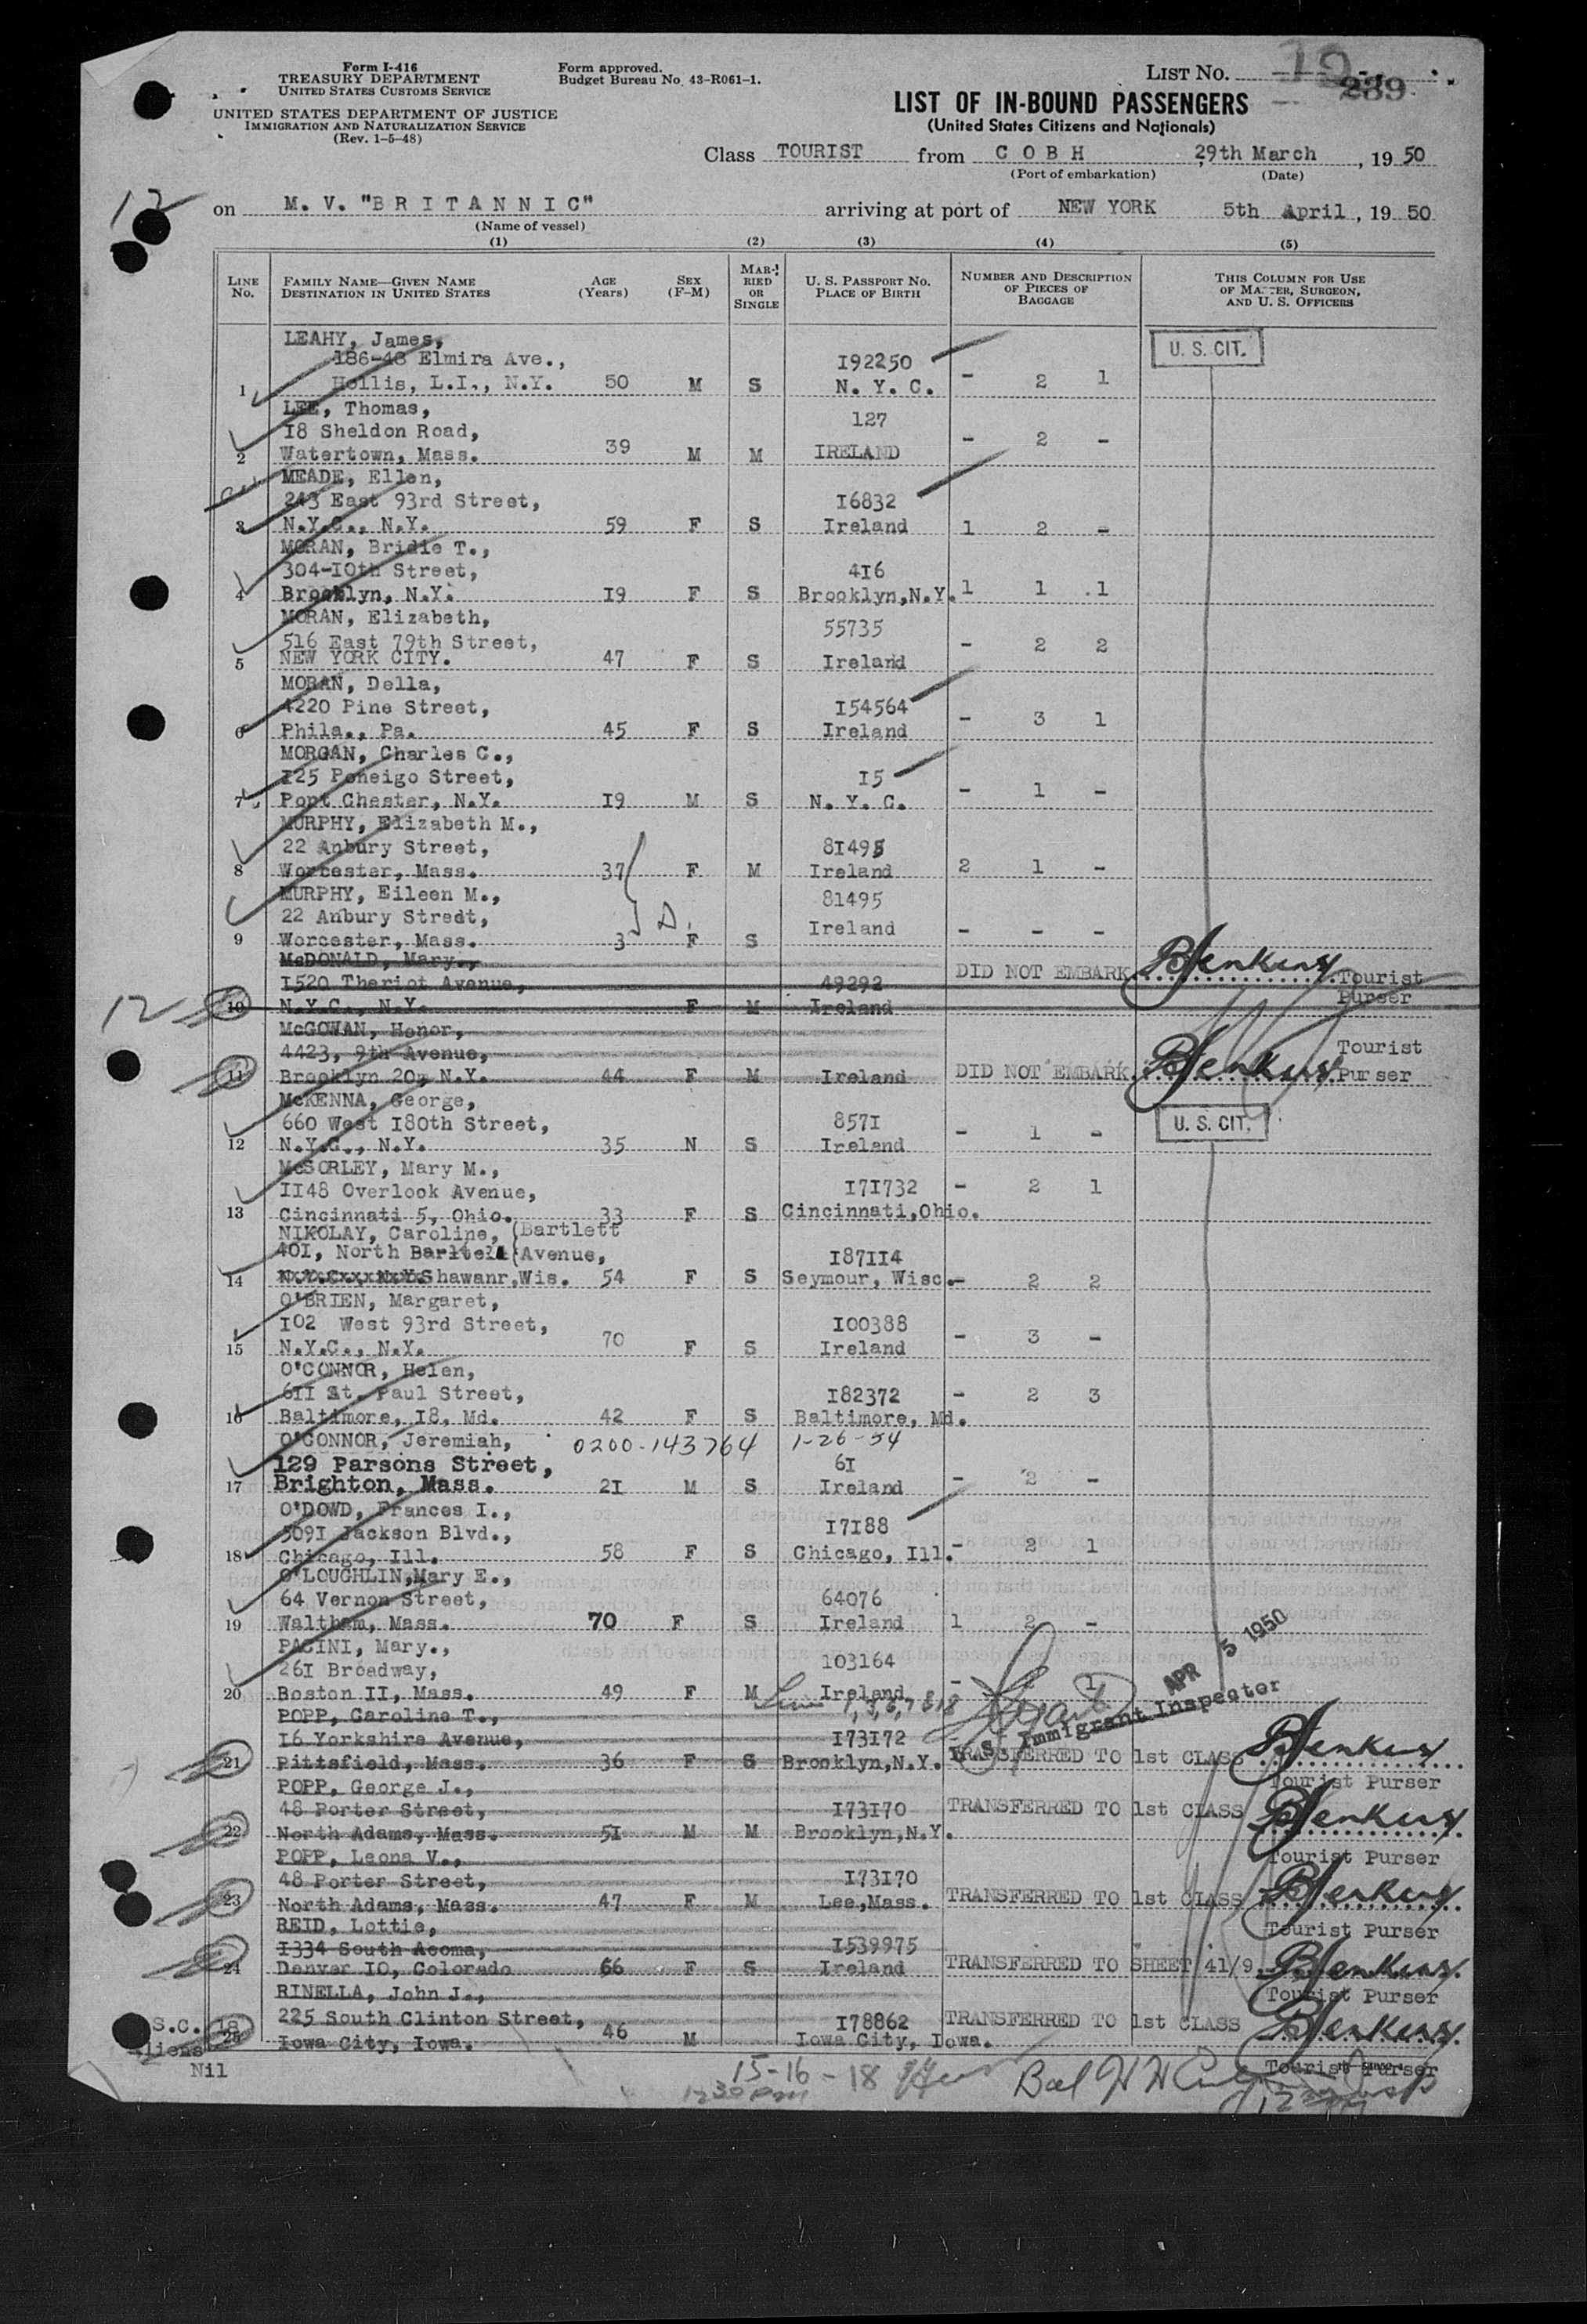 Form I-416
TREASURY DEPARTMENT
UNITED STATES CUSTOMS SERVICE
UNITED STATES DEPARTMENT OF JUSTICE
IMMIGRATION AND NATURALIZATION SERVICE
(Rev. 1-5-48)
Form approved.
Budget Bureau No. 43-R061-1.
LIST NO. 10
239
LIST OF IN-BOUND PASSENGERS
(United States Citizens and Nationals)
Class TOURIST from COBH 29th March, 19 50
(Port of embarkation) (Date)
12
on M. V. "BRITANNIC" arriving at port of NEW YORK 5th April, 19 50
(Name of vessel)
(1) (2) (3) (4) (5)
LINE No. FAMILY NAME—GIVEN NAME DESTINATION IN UNITED STATES AGE (Years) SEX (F-M) MARRIED OR SINGLE U. S. PASSPORT NO. PLACE OF BIRTH NUMBER AND DESCRIPTION OF PIECES OF BAGGAGE THIS COLUMN FOR USE OF MASTER, SURGEON, AND U. S. OFFICERS
LEAHY, James, U. S. CIT.
186-48 Elmira Ave., 192250
1 Hollis, L.I., N.Y. 50 M S N. Y. C. - 2 1
LEE, Thomas,
18 Sheldon Road, 127
2 Watertown, Mass. 39 M M IRELAND - 2 -
MEADE, Ellen,
243 East 93rd Street, 16832
3 N.Y.C., N.Y. 59 F S Ireland 1 2 -
MORAN, Bridie T.,
304-10th Street, 416
4 Brooklyn, N.Y. 19 F S Brooklyn,N.Y. 1 1 1
MORAN, Elizabeth,
516 East 79th Street, 55735
5 NEW YORK CITY. 47 F S Ireland - 2 2
MORAN, Della,
4220 Pine Street, 154564
6 Phila., Pa. 45 F S Ireland - 3 1
MORGAN, Charles C.,
125 Poneigo Street, 15
7 Port Chester, N.Y. 19 M S N. Y. C. - 1 -
MURPHY, Elizabeth M.,
22 Anbury Street, 81495
8 Worcester, Mass. 37 F M Ireland 2 1 -
MURPHY, Eileen M.,
22 Anbury Stredt, 81495
9 Worcester, Mass. 3 F S Ireland - - -
McDONALD, Mary., DID NOT EMBARK BJenkins Tourist
1520 Theriot Avenue, 49292 Purser
12 10 N.Y.C., N.Y. F M Ireland
McGOWAN, Honor,
4423, 9th Avenue, Tourist
11 Brooklyn 20, N.Y. 44 F M Ireland DID NOT EMBARK BJenkins Purser
McKENNA, George,
660 West 180th Street, 8571 U. S. CIT.
12 N.Y.C., N.Y. 35 N S Ireland - 1 -
McSORLEY, Mary M.,
1148 Overlook Avenue, 171732
13 Cincinnati 5, Ohio. 33 F S Cincinnati,Ohio. - 2 1
NIKOLAY, Caroline, (Bartlett
401, North Bartell (Avenue, 187114
14 Shawanr,Wis. 54 F S Seymour, Wisc. - 2 2
O'BRIEN, Margaret,
102 West 93rd Street, 100388
15 N.Y.C., N.Y. 70 F S Ireland - 3 -
O'CONNOR, Helen,
611 St. Paul Street, 182372
16 Baltimore, 18, Md. 42 F S Baltimore, Md. - 2 3
O'CONNOR, Jeremiah, 0200-143764 1-26-54
129 Parsons Street, 61
17 Brighton, Mass. 21 M S Ireland - 2 -
O'DOWD, Frances I.,
5091 Jackson Blvd., 17188
18 Chicago, Ill. 58 F S Chicago, Ill. - 2 1
O'LOUGHLIN,Mary E.,
64 Vernon Street, 64076
19 Waltham, Mass. 70 F S Ireland 1 2 -
PACINI, Mary.,
261 Broadway, 103164
20 Boston II, Mass. 49 F M Ireland - 1
APR 5 1950
U. S. Immigrant Inspector
POPP, Caroline T.,
16 Yorkshire Avenue, 173172
21 Pittsfield, Mass. 36 F S Brooklyn,N.Y. TRANSFERRED TO 1st CLASS BJenkins
POPP, George J., Tourist Purser
48 Porter Street, 173170 TRANSFERRED TO 1st CLASS BJenkins
22 North Adams, Mass. 51 M M Brooklyn,N.Y.
POPP, Leona V., Tourist Purser
48 Porter Street, 173170
23 North Adams, Mass. 47 F M Lee,Mass. TRANSFERRED TO 1st CLASS BJenkins
REID, Lottie, Tourist Purser
1334 South Acoma, 1539975
24 Denver 10, Colorado 66 F S Ireland TRANSFERRED TO SHEET 41/9 BJenkins
RINELLA, John J., Tourist Purser
225 South Clinton Street, 178862 TRANSFERRED TO 1st CLASS BJenkins
25 Iowa City, Iowa. 46 M Iowa City, Iowa.
S.C. 18
Aliens
Nil
Tourist Purser
15-16-18
1230 pm